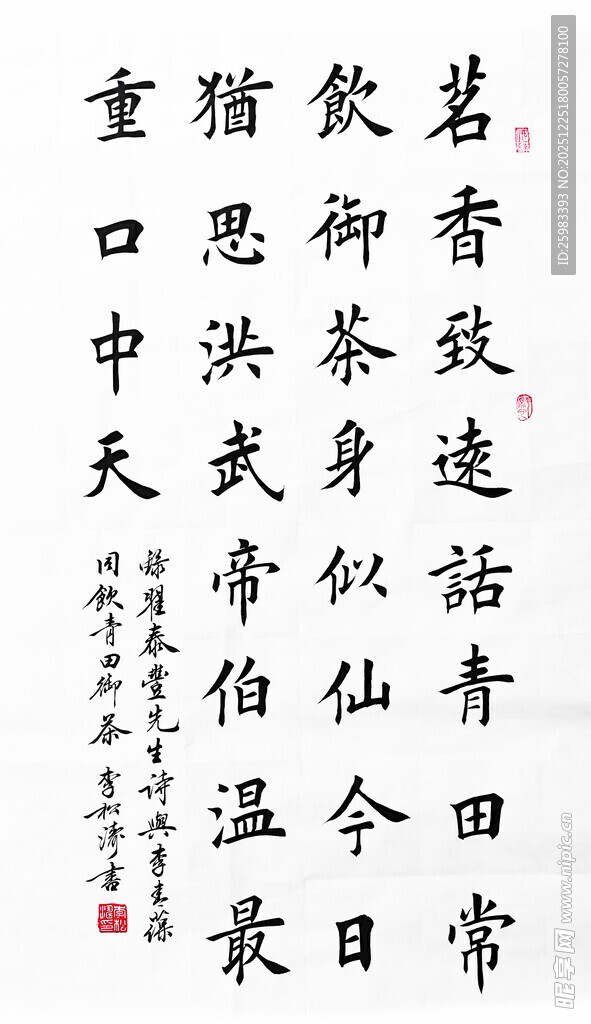 茗香致遠話青田常
飲御茶身似仙今日
猶思洪武帝伯温最
重口中天
錄翟泰豐先生詩與李青葆
同飲青田御茶 李松濤書
ID:25983393 NO:20251225180057278100
昵享网 www.nipic.cn